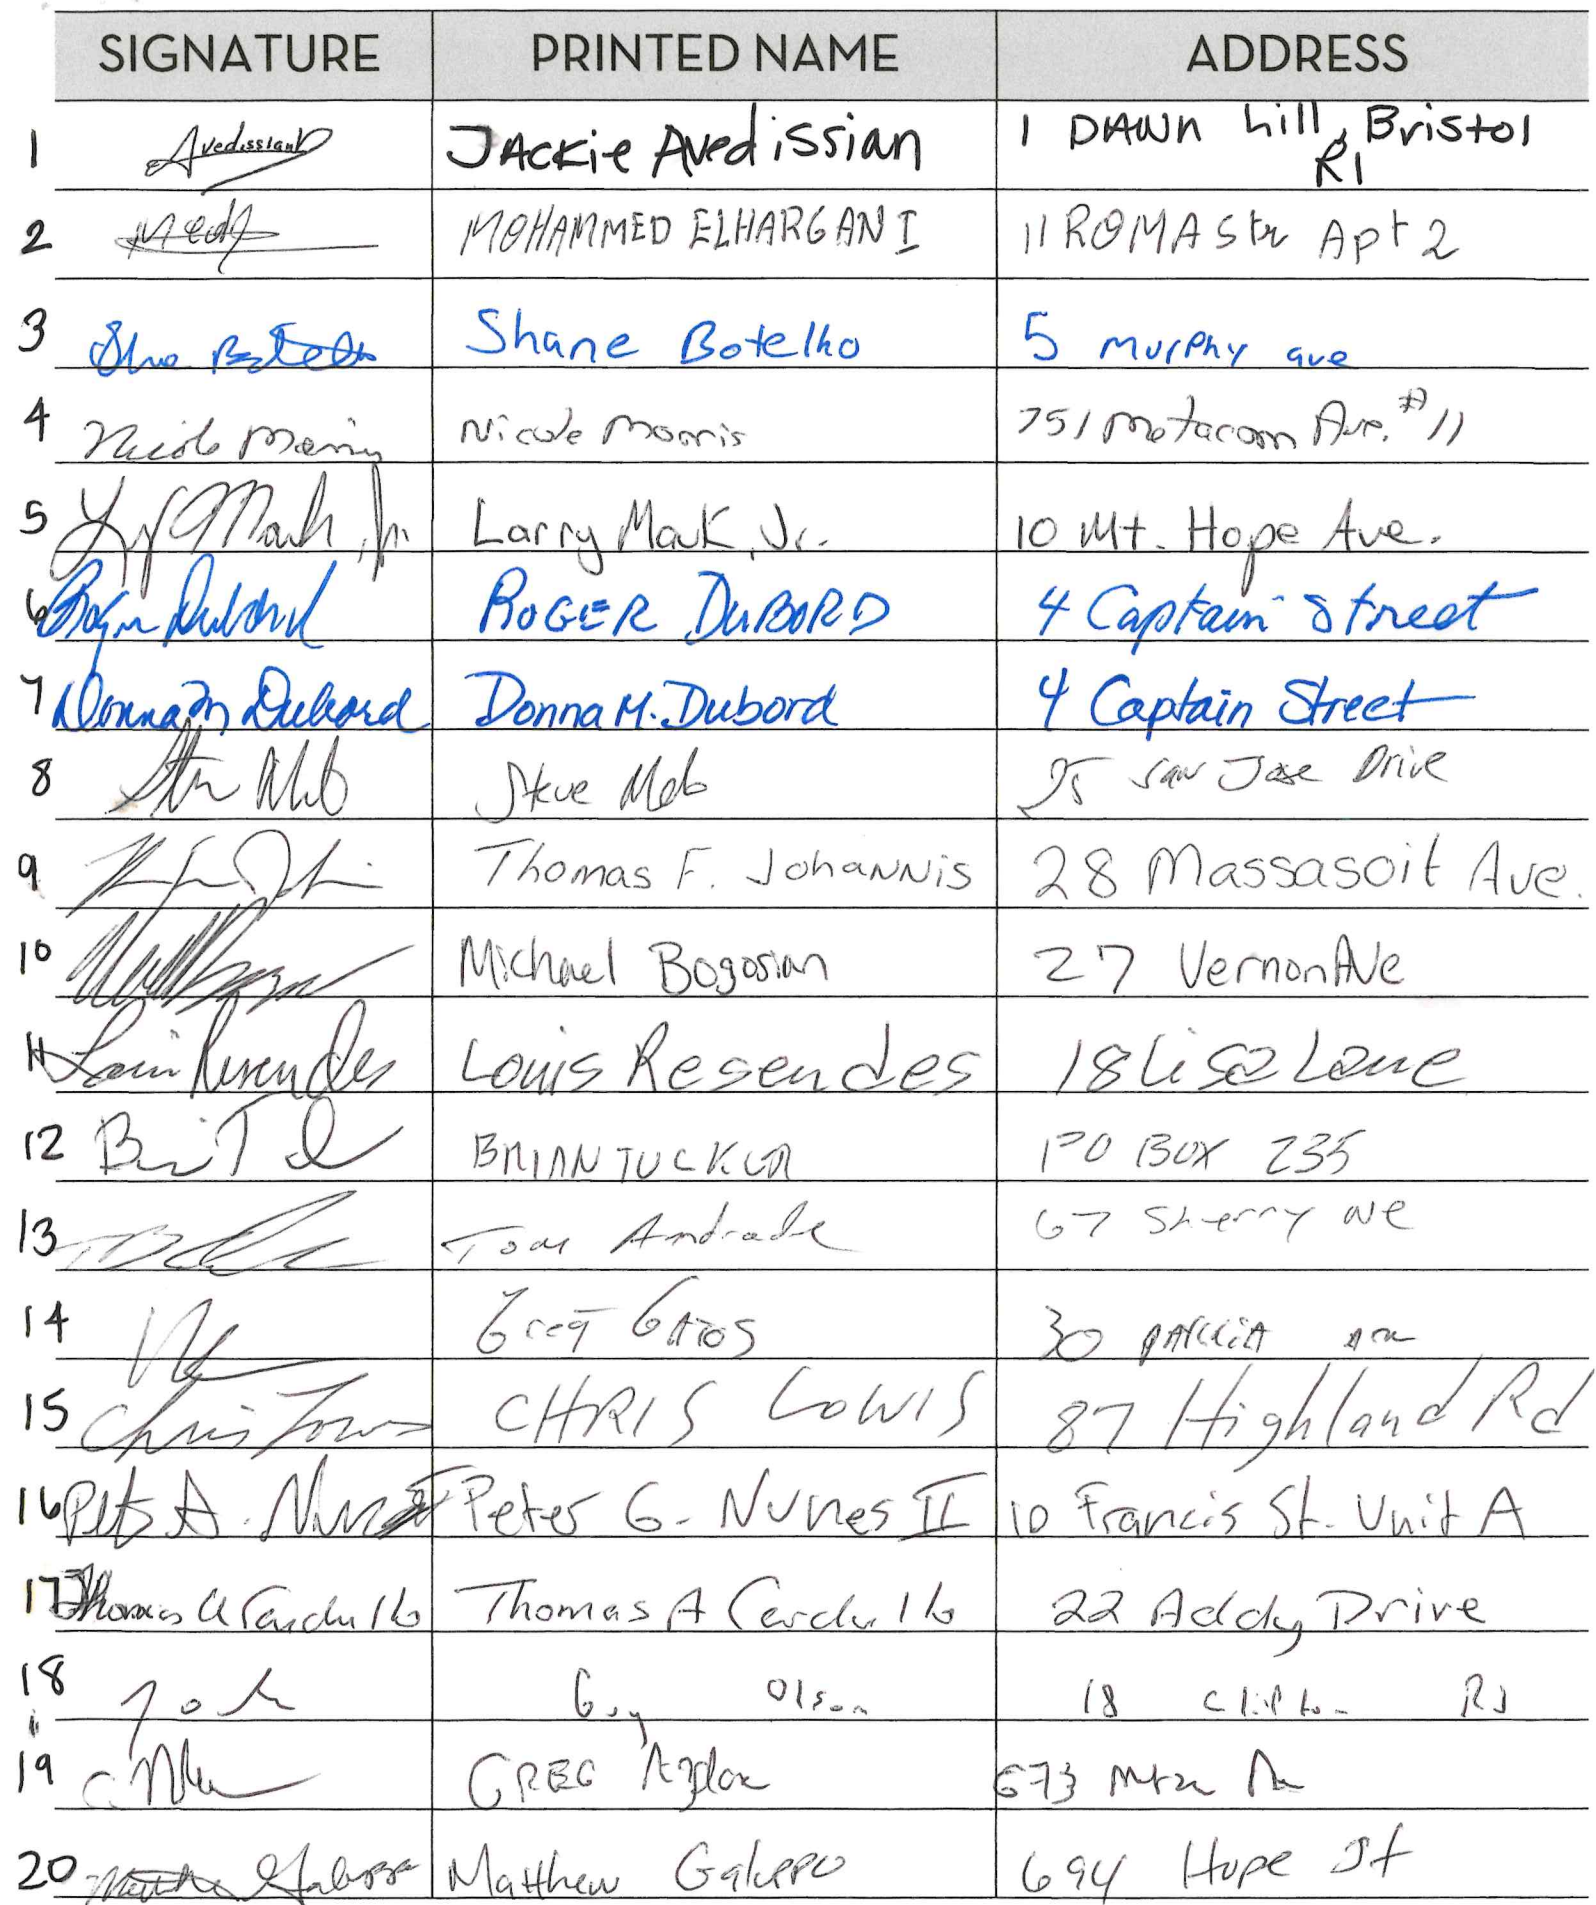 SIGNATURE PRINTED NAME ADDRESS
1 Avedissian JACKie Avedissian 1 DAWn hill, Bristol
RI
2 Med MOHAMMED ELHARGANI 11 ROMA Str Apt 2
3 Shane Botelho 5 Murphy ave
4 Nicole Morris Nicole Morris 751 Metacom Ave. #11
5 Mack, Jr. Larry Mack, Jr. 10 Mt. Hope Ave.
6 Roger Dubord ROGER DUBORD 4 Captain Street
7 Donna M Dubord Donna M. Dubord 4 Captain Street
8 Steve Melo 25 San Jose Drive
9 Thomas F. Johannis 28 Massasoit Ave.
10 Michael Bogosian 27 Vernon Ave
11 Louis Resendes Louis Resendes 18 Lisa Lane
12 BRIAN TUCKER PO BOX 235
13 Tom Andrade 67 Sherry Ave
14 Greg 30
15 Chris CHRIS LOWIS 87 Highland Rd
16 Peter G. Nunes II 10 Francis St. Unit A
17 Thomas A Cardullo Thomas A Cardullo 22 Addy Drive
18 Guy Olson 18 Clifton Rd
19 GREG 673
20 Matthew Galuppo 694 Hope St